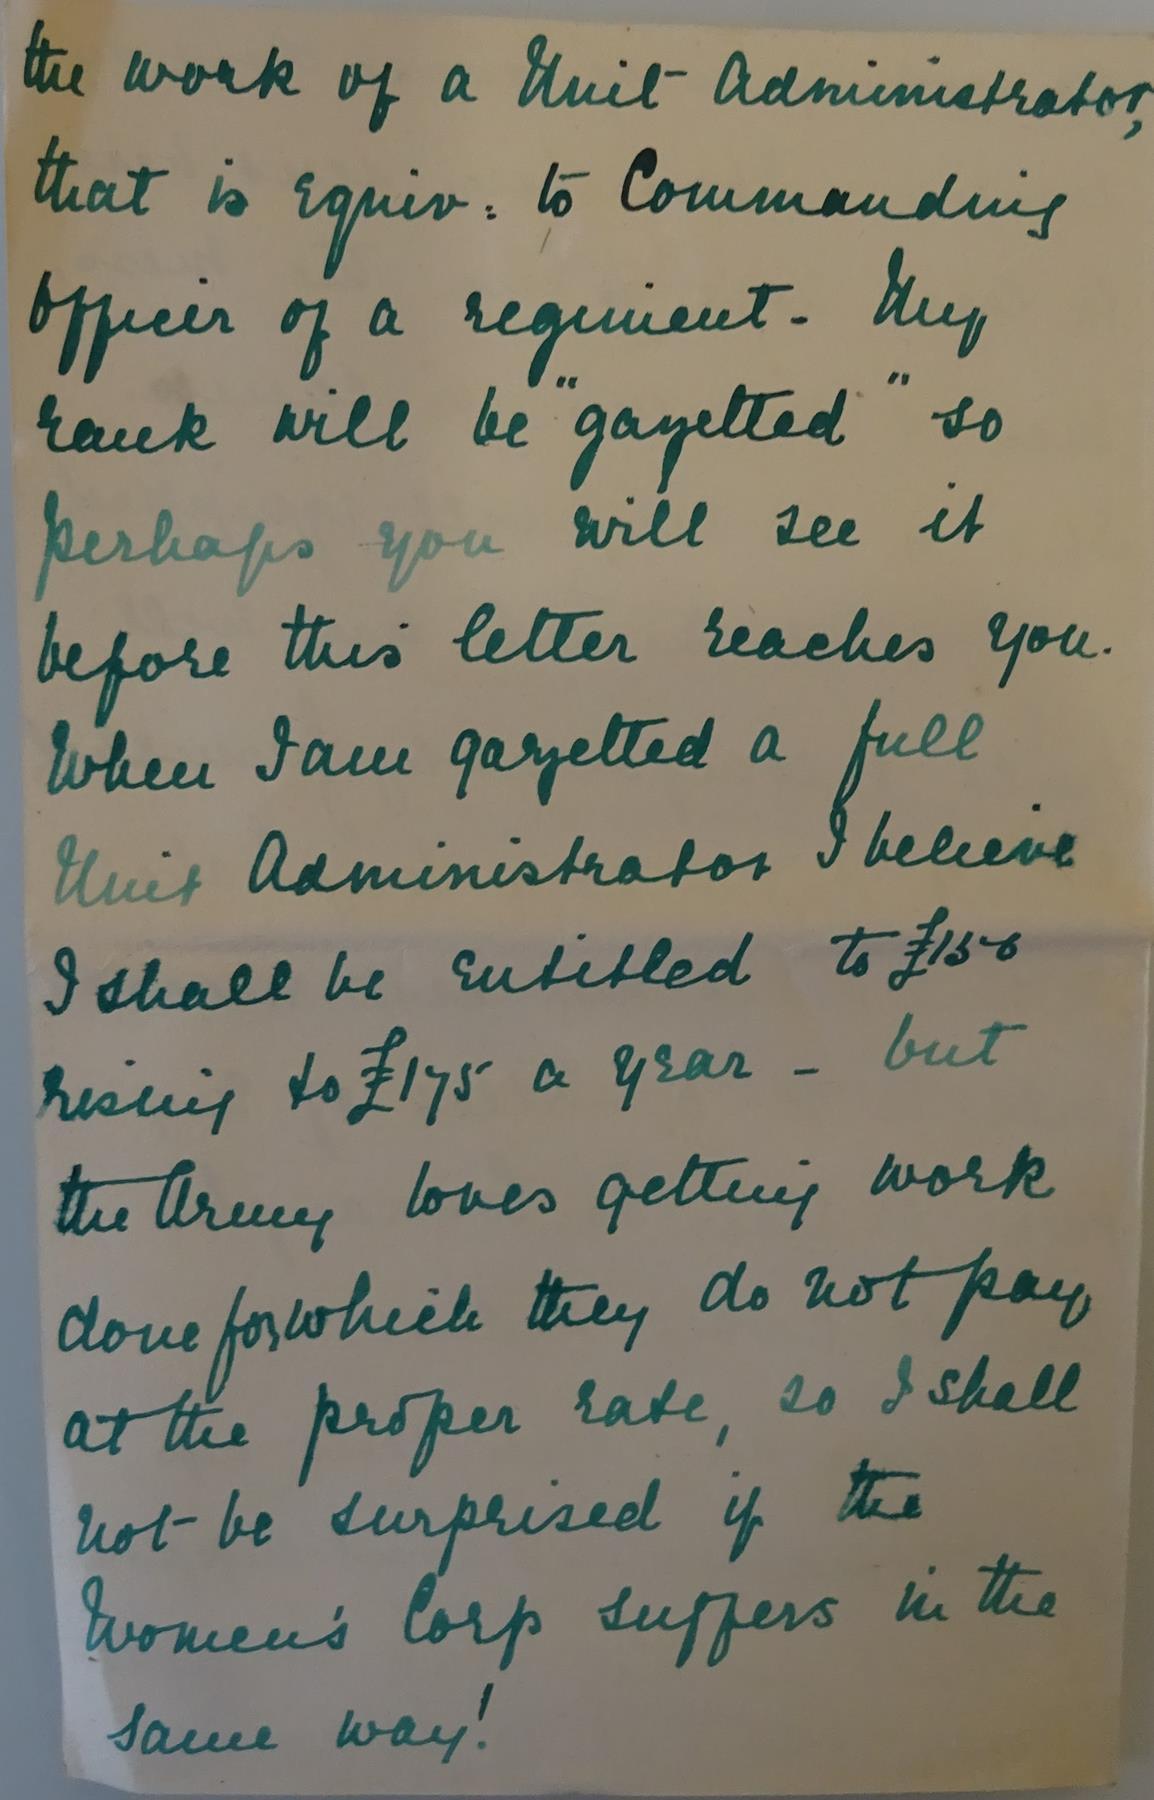 the work of a Unit Administrator,
that is equiv. to Commanding
Officer of a regiment - My
rank will be "gazetted" so
perhaps you will see it
before this letter reaches you.
When I am gazetted a full
Unit Administrator I believe
I shall be entitled to £150
rising to £175 a year - but
the Army loves getting work
done for which they do not pay
at the proper rate, so I shall
not be surprised if the
Women's Corp suffers in the
same way!